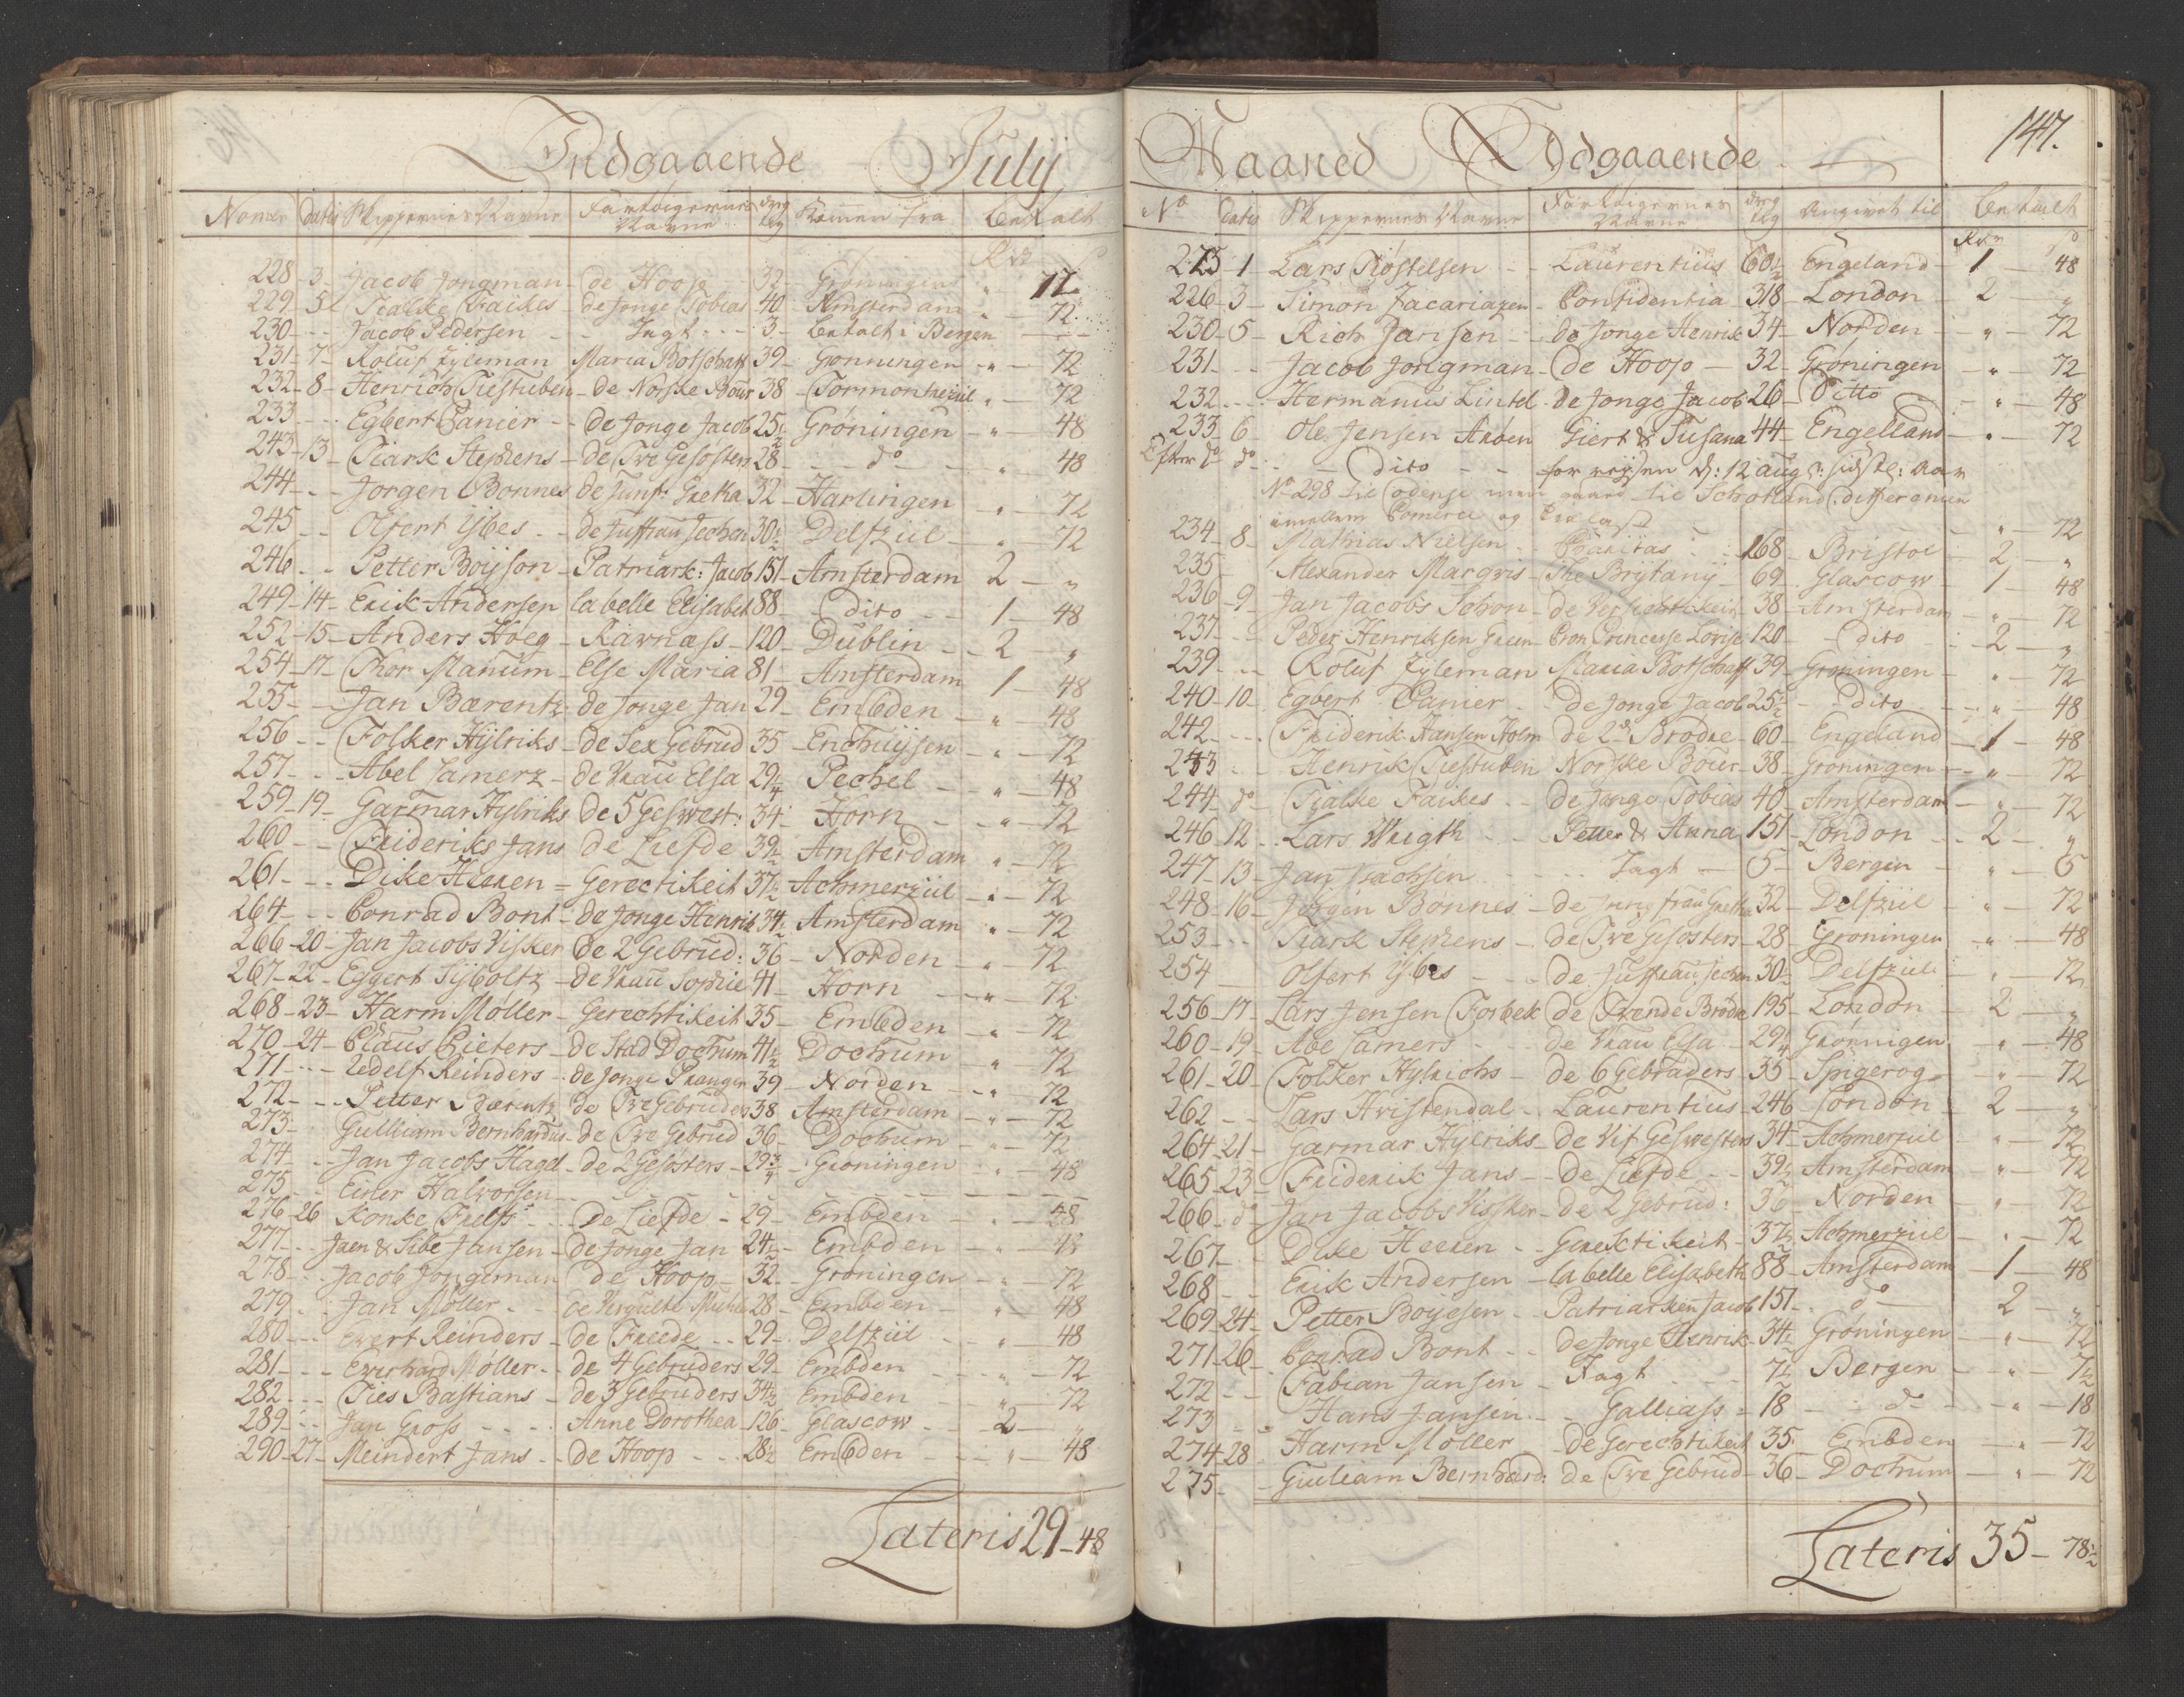 Indgaaende July
Nomer Datis Skippernes Navne Fartøigernes Navne Dreg tig Kommen fra betalt
Rdr
228 - 3 - Jacob Jongman - de Hoop 32 - Groningen " 72
229 - 5 - Tialke Faikes - de Jonge Tobias 40 - Amsterdam " - 72
230 - - Jacob Pedersen - Jagt - 3 - betalt i Bergen - - -
231 - 7 - Roluf Zyleman Maria Botschaft 39 - Gronningen - " - 72
232 - 8 - Henrich Tiestuben - de Norske Bour 38 - Tormonterziil " - 72
233 - - Egbert Panier - - de Jonge Jacob 25½ Grøningen - " - 48
243 - 13 - Tiark Stephens - de Tve Gesøsters 28 - - do - - " - 48
244 - - Jorgen Bonnes de Junf: Gretha 32 - Harlingen - " - 72
245 - - Olfert Ybes - - de Juffrau Jechon 30½ Delfziil - " - 72
246 - - Petter Boyson - Patriark: Jacob 151 - Amsterdam 2 - "
249 - 14 - Erik Andersen la belle Elisabeth 88 - dito - - 1 - 48
252 - 15 - Anders Hoeg - Ravnæss - 120 - Dublin - - 2 "
254 - 17 - Thor Manum - Else Maria 81 - Amsterdam 1 - 48
255 - - Jan Bærentz - de Jonge Jan 29 - Embden - " - 48
256 - - Folker Hylriks - de Sex Gebrud 35 - Enchuysen - " - 72
257 - - Abel Jamerz - de Vrau Elsa 29¼ Pechel - " - 48
259 - 19 - Garmar Hylriks de 5 Geswest: 34 - Horn - - " - 72
260 - - Friderik Jans de Liefde 39½ Amsterdam " - 72
261 - - Dike Heeren = Gerectikeit 37½ Achmerziil - " - 72
264 - - Conrad Bont - de Jonge Henrik 34½ Amsterdam " - 72
266 - 20 - Jan Jacobs Visker de 2 Gebrud: 36 - Norden - " 72
267 - 22 - Eggert Syboltz - de Vrau Sophie 41 - Horn - " - 72
268 - 23 - Harm Møller - Gerechtikeit 35 - Embden - " - 72
270 - 24 - Claus Pieters - de Stad Dochum 41½ Dochum " - 72
271 - - Udelf Reinders - de Jonge Pranger 39 - Norden - - " 72
272 - - Petter Bærentz de Tve Gebruders 38 Amsterdam - " - 72
273 - Gulliam Bernhardus - de Tve Gebrud 36 - Dochum " - 72
274 - Jan Jacobs Hagel - de 2 Gesøsters - 29¾ - Groningen - " - 48
275 - Einer Halvorsen - - - -
276 - 26 Konke Frelfs - - De Liefde - 29 - Embden - " - 48
277 - - Jaen & Sibe Jansen - de Jonge Jan 24½ - Embden - " - 48
278 - Jacob Jongeman de Hoop - 32 - Grøningen - " - 72
279 - Jan Møller - - de Vergulte 28 - Embden - " - 48
280 - - Evert Reinders - de Freede - - 29 - Delfziil " - 48
281 - - Everhard Møller - de 4 Gebruders 29 - Embden - - " - 72
282 - - Ties Bastians - de 3 Gebruders 34½ Embden " - 72
289 - - Jan Gross - - - Anne Dorothea - 126 - Glascow - - 2 - "
290 - 27 - Meindert Jans - - de Hoop - - - 28½ Embden - - " - 48
Lateris 29 - 48
Maaned Udgaaende 147.
No Datis Skippernes Navne Fartøigernes Navne Dreg tig Angivet til betalt
Rdr
225 - 1 - Lars Kiøstelsen - - Laurentius 60½ Engeland - 1 - 48
226 - 3 - Simon Zacariazen - Confidentia 318 - London - 2 - "
230 - 5 - Rich Jansen - - de Jonge Henrik 34 - Norden - " - 72
231 - - Jacob Jongman - de Hoop - 32 - Grøningen - " - 72
232 - - Hermanus Lintel - de Jonge Jacob 26 - Ditto " - 48
233 6 - Ole Jensen Aroen Giert & Susana 44 - Engelland - " - 72
Efter do do - - dito - - for reysen d: 12 aug: sidste: Aar
No 298 til Odense men gaaed til Schotland differencen
imellem Comerce og last - " - 72
234 - 8 - Mathias Nielsen - Caritas - 168 - Bristol - 2 - "
235 Alexander Margvis - The Brytany - 69 - Glascow - 1 - 48
236 - 9 - Jan Jacobs Schon - de Vorsichtikeit - 38 - Amsterdam - " - 72
237 - - Peder Henriksen Green Cron Princesse Lovise 120 - dito - 2 - "
239 - - Roluf Zyleman Maria Botschaft 39 - Groningen - " - 72
240 - 10 - Egbert Panier - de Jonge Jacob 25½ - dito - - " - 48
242 - - Friderik Hansen Holm de 2de Brødre - 60 - Engeland - 1 - 48
243 - - Henrik Tiestuben Norske Bour - 38 - Groningen - " - 72
244 - do - Tialke Faikes - - de Jonge Tobias 40 - Amsterdam - " - 72
246 - 12 - Lars Wrigth - - Petter & Anna 151 - London - 2 - "
247 - 13 - Jan Isachsen - - - Jagt - 5 - Bergen - " - 5
248 - 16 - Jørgen Bonnes - de Jungfrau Gretha 32 - Delfziil - " - 72
253 - - Tiark Stephens - de Tve Gesosters - 28 - Groningen - " - 48
254 - Olfert Ybes - - de Juffrau Jechon 30½ - Delfziil - " - 72
256 - 17 - Lars Jensen Fosbek de Trende Brødre 195 - London - 2 - "
260 - 19 - Abe Jamers - - de Vrau Elsa - 29¼ Grønnigen - " - 48
261 - 20 - Folker Hylrichs - de 6 Gebruders - 35 - Spigerog - " - 72
262 - - Lars Kristendal - Laurentius - 246 - London - 2 - "
264 - 21 - Garmar Hylriks - de Vif Geswesters 34 - Achmerziil - " - 72
265 - 23 - Friderik Jans - - De Liefde - - 39½ Amsterdam - " - 72
266 - do - Jan Jacobs Vissker - de 2 Gebrud: 36 - Norden - " - 72
267 - - Dike Heeren - - Gerektikeit - 37½ Achmerziil - " - 72
268 - Erik Andersen - la belle Elisabeth 88 - Amsterdam - 1 - 48
269 - 24 - Petter Boyesen - Patriarken Jacob 151 - do - 2 - "
271 - 26 - Conrad Bont - - de Jonge Henrik - 34½ Groningen - " - 72
272 - - Fabian Jansen - Jagt - - 7½ Bergen - " - 7½
273 - Hans Jansen - - Galliass - 18 - do - " - 18
274 - 28 - Harm Møller - de Gerechtikeit 35 - Embden - " - 72
275 - Giuliam Bernhard: de Tve Gebrud - 36 - Dochum - " - 72
Lateris 35 - 78½